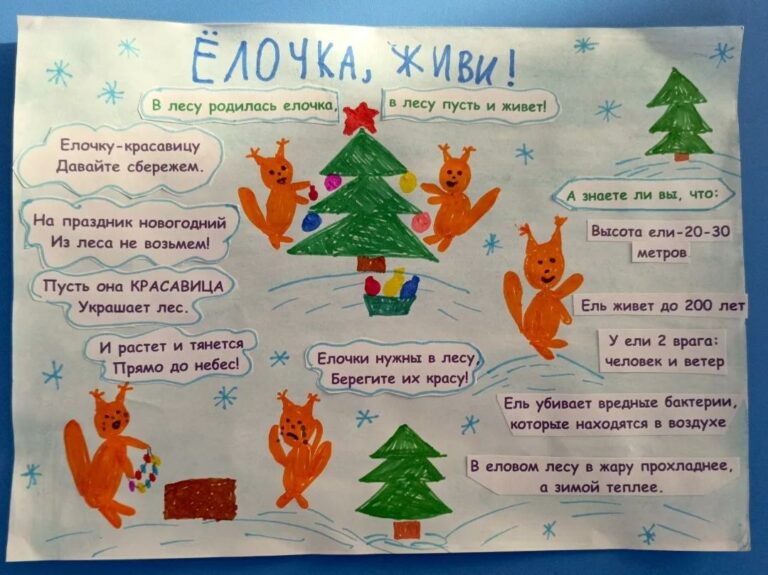 ЁЛОЧКА, ЖИВИ!
В лесу родилась елочка, в лесу пусть и живет!
Елочку-красавицу
Давайте сбережем.
На праздник новогодний
Из леса не возьмем!
Пусть она КРАСАВИЦА
Украшает лес.
И растет и тянется
Прямо до небес!
Елочки нужны в лесу,
Берегите их красу!
А знаете ли вы, что:
Высота ели-20-30
метров
Ель живет до 200 лет
У ели 2 врага:
человек и ветер
Ель убивает вредные бактерии,
которые находятся в воздухе
В еловом лесу в жару прохладнее,
а зимой теплее.